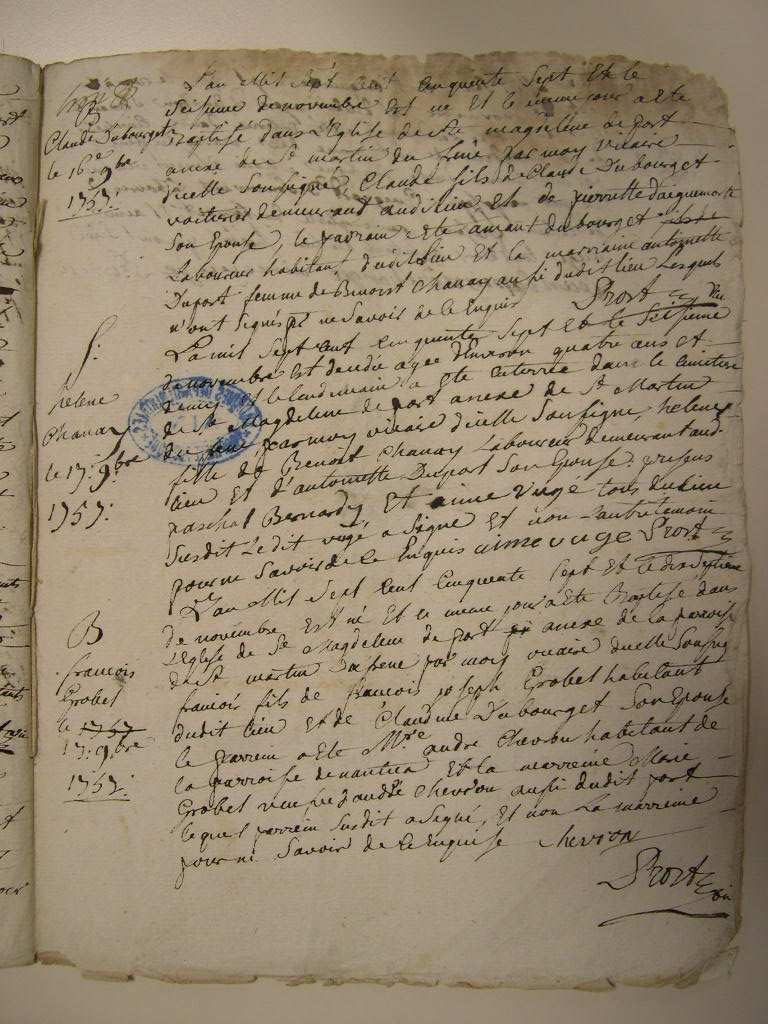 B
Claude Dubourget
le 16e 9bre
1757:
L'an Mil Sept Cent Cinquante Sept Et le
Seisieme de novembre Est ne Et le meme jour a ete
Baptisé dans l'Eglise de Ste magdelene de port
anexe de St martin du frene par moy vicaire
d'icelle Soussigné, Claude fils de Claude Dubourget
voiturier demeurant audit lieu Et de pierrette
Son Epouse, le parrain a ete amant dubourget
Laboureur habitant dudit lieu Et la marraine antoinette
Duport femme de Benoist Chanay aussi dudit lieu Lesquels
n'ont Signés p ne Savoir de ce Enquis Prost vic
S:
helene
Chanay
le 17: 9bre
1757:
L'a mil Sept Cent Cinquante Sept Et le Seisieme
de novembre Est decedée agée d'Environ quatre ans et
demis et le lendemain a Ete Enterrée dans le Cimitiere
de Ste Magdelene de port anexe de St Martin
du frene, par moy vicaire d'icelle Soussigne, helene
fille de Benoit Chanay Laboureur demeurant aud
lieu Et d'antoinette Duport Son Epouse. presens
paschal Bernardy, Et aime vuge tous du lieu
Susdit Ledit vugé a Signé Et non L'autre temoin
pour ne Savoir de ce Enquis aime vuge Prost
B
francois
Grobet
le 1757
17: 9bre
1757:
L'an Mil Sept Cent Cinquante Sept Et le dix Septieme
de novembre Est né Et le meme jour a Ete Baptisé dans
l'Eglise de Ste Magdelene de port anexe de la paroisse
de St martin Du frene par moy vicaire d'icelle Soussig
francois fils de francois joseph Grobet habitant
dudit lieu Et de Claudine Dubourget Son Epouse
le parrein a ete Mre andre Chevron habitant de
la parroisse de nantua Et la marreine Marie
Grobet veuve d'andre Chevron aussi dudit port
lequel parrein Susdit a Signé, Et non La marreine
pour ne Savoir de ce Enquise Chevron
Prost vic